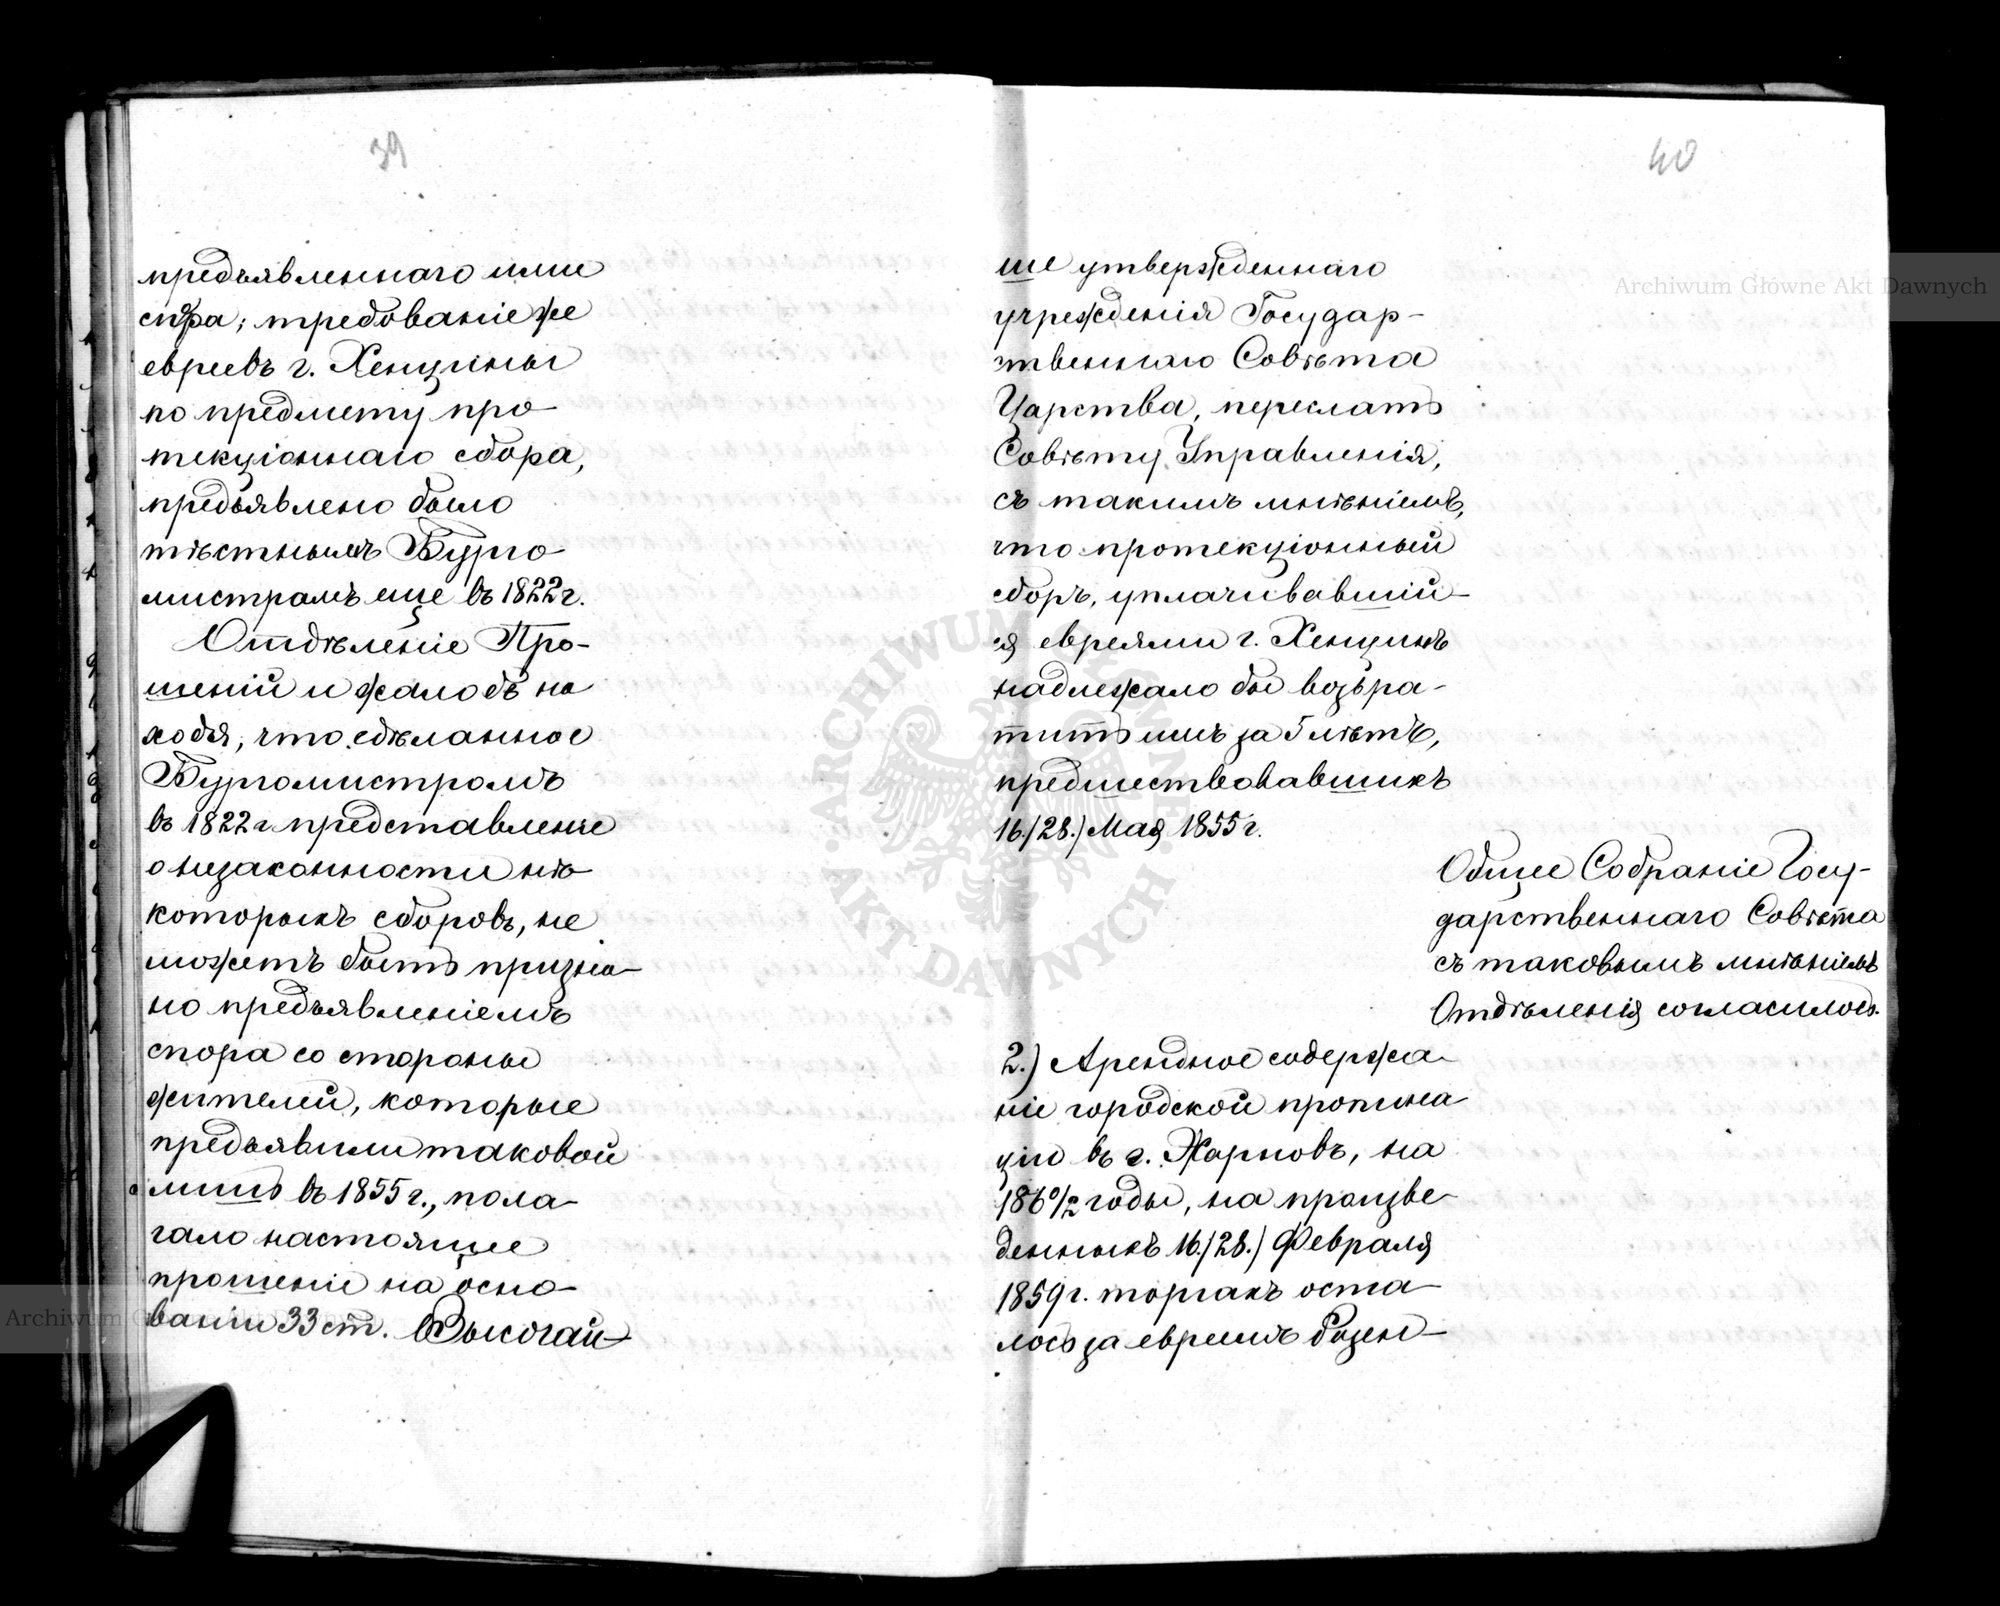 39
предъявленнаго ими
спора; требованіе же
евреевъ г. Хенцины
по предмету про-
текціоннаго сбора,
предъявлено было
мѣстнымъ Бурго-
мистромъ еще въ 1822 г.
Отдѣленіе Про-
шеній и жалобъ на
ходя, что сдѣланное
Бургомистромъ
въ 1822 г. представленіе
о незаконности нѣ-
которыхъ сборовъ, не
можетъ быть призна-
но предъявленіемъ
спора со стороны
жителей, которые
предъявили таковой
лишь въ 1855 г., пола-
гало настоящее
прошеніе на осно-
ваніи 33 ст. Высочай-
40
ше утвержденнаго
учрежденія Государ-
ственнаго Совѣта
Царства, переслать
Совѣту Управленія,
съ такимъ мнѣніемъ,
что протекціонный
сборъ, уплачивавшій-
ся евреями г. Хенцинъ
надлежало бы возвра-
тить имъ за 5 лѣтъ,
предшествовавшихъ
16./28.) Мая 1855 г.
Общее Собраніе Госу-
дарственнаго Совѣта
съ таковымъ мнѣніемъ
Отдѣленія согласилось.
2.) Арендное содержа-
ніе городской пропина-
ціи въ г. Жарновъ, на
1860/2 годы, на произве-
денныхъ 16./28.) Февраля
1859 г. торгахъ оста-
лось за евреемъ Розен-
Archiwum Główne Akt Dawnych
ARCHIWUM GŁÓWNE AKT DAWNYCH